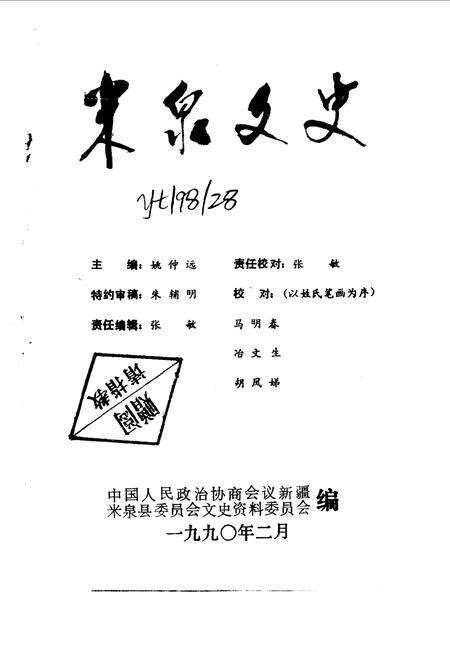 米泉文史
yt/98/28
主 编：姚仲远 责任校对：张 敏
特约审稿：朱辅明 校 对：（以姓氏笔画为序）
责任编辑：张 敏 马明春
冶文生
胡凤娣
赠阅
请指教
中国人民政治协商会议新疆
米泉县委员会文史资料委员会 编
一九九〇年二月